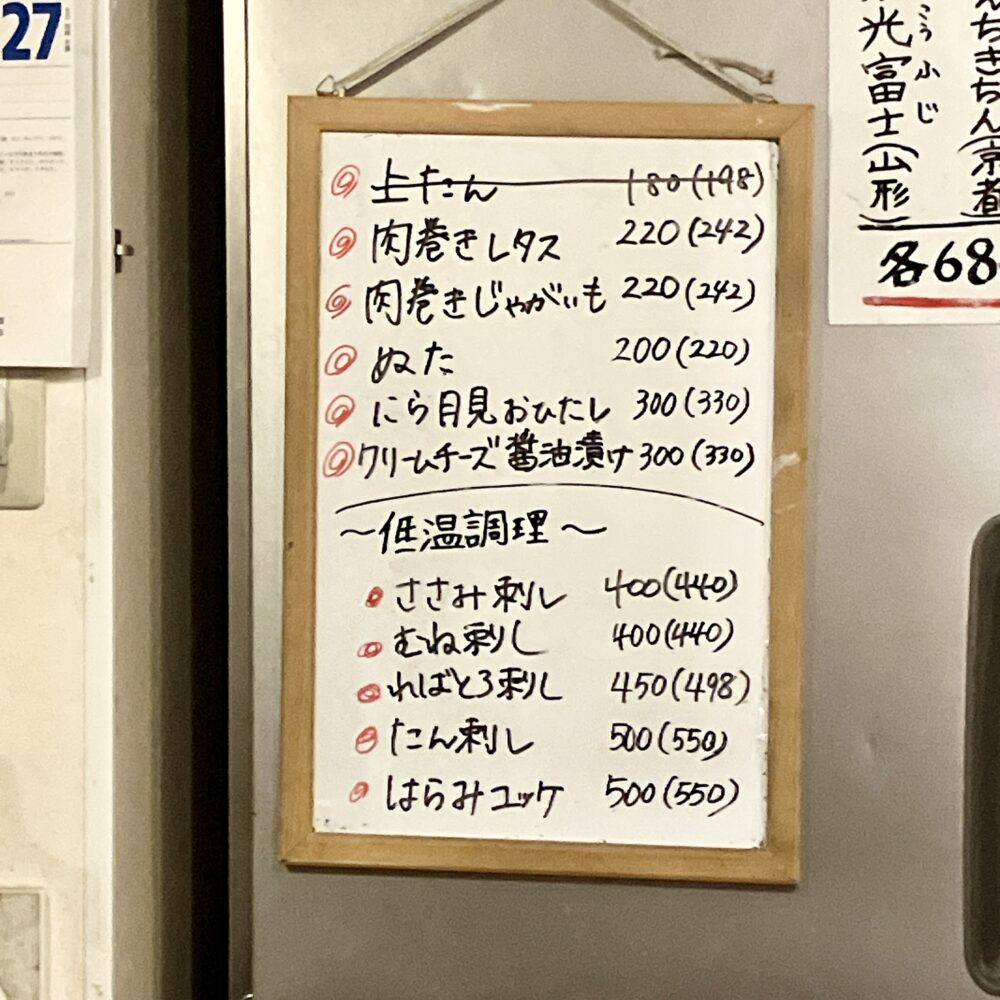 27
上たん 180(198)
肉巻きレタス 220(242)
肉巻きじゃがいも 220(242)
ぬた 200(220)
にら月見おひたし 300(330)
クリームチーズ醤油漬け 300(330)
～低温調理～
ささみ刺し 400(440)
むね刺し 400(440)
ればとろ刺し 450(498)
たん刺し 500(550)
はらみユッケ 500(550)
ちきちん(京都
光富士(山形)
こうふじ
各68